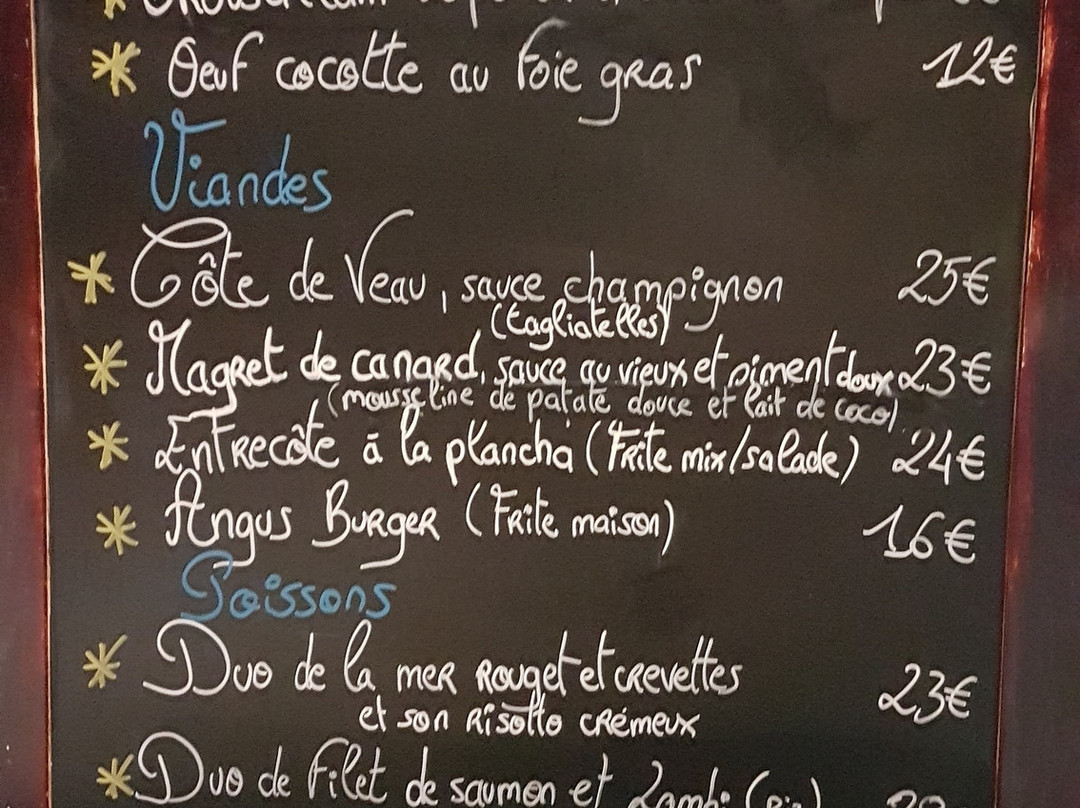 * Oeuf cocotte au foie gras 12€
Viandes
* Côte de Veau, sauce champignon 25€
(tagliatelles)
* Magret de canard, sauce au vieux et piment doux 23€
(mousseline de patate douce et lait de coco)
* Entrecôte à la plancha (Frite mix/salade) 24€
* Angus Burger (Frite maison) 16€
Poissons
* Duo de la mer Rouget et crevettes 23€
et son Risotto crémeux
* Duo de Filet de saumon et